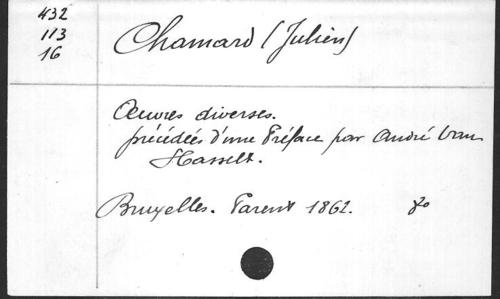 432
113
16
Chamard (Julien)
Œuvres diverses.
précédées d'une Préface par André Van
Hasselt.
Bruxelles. Parent 1862. 8o